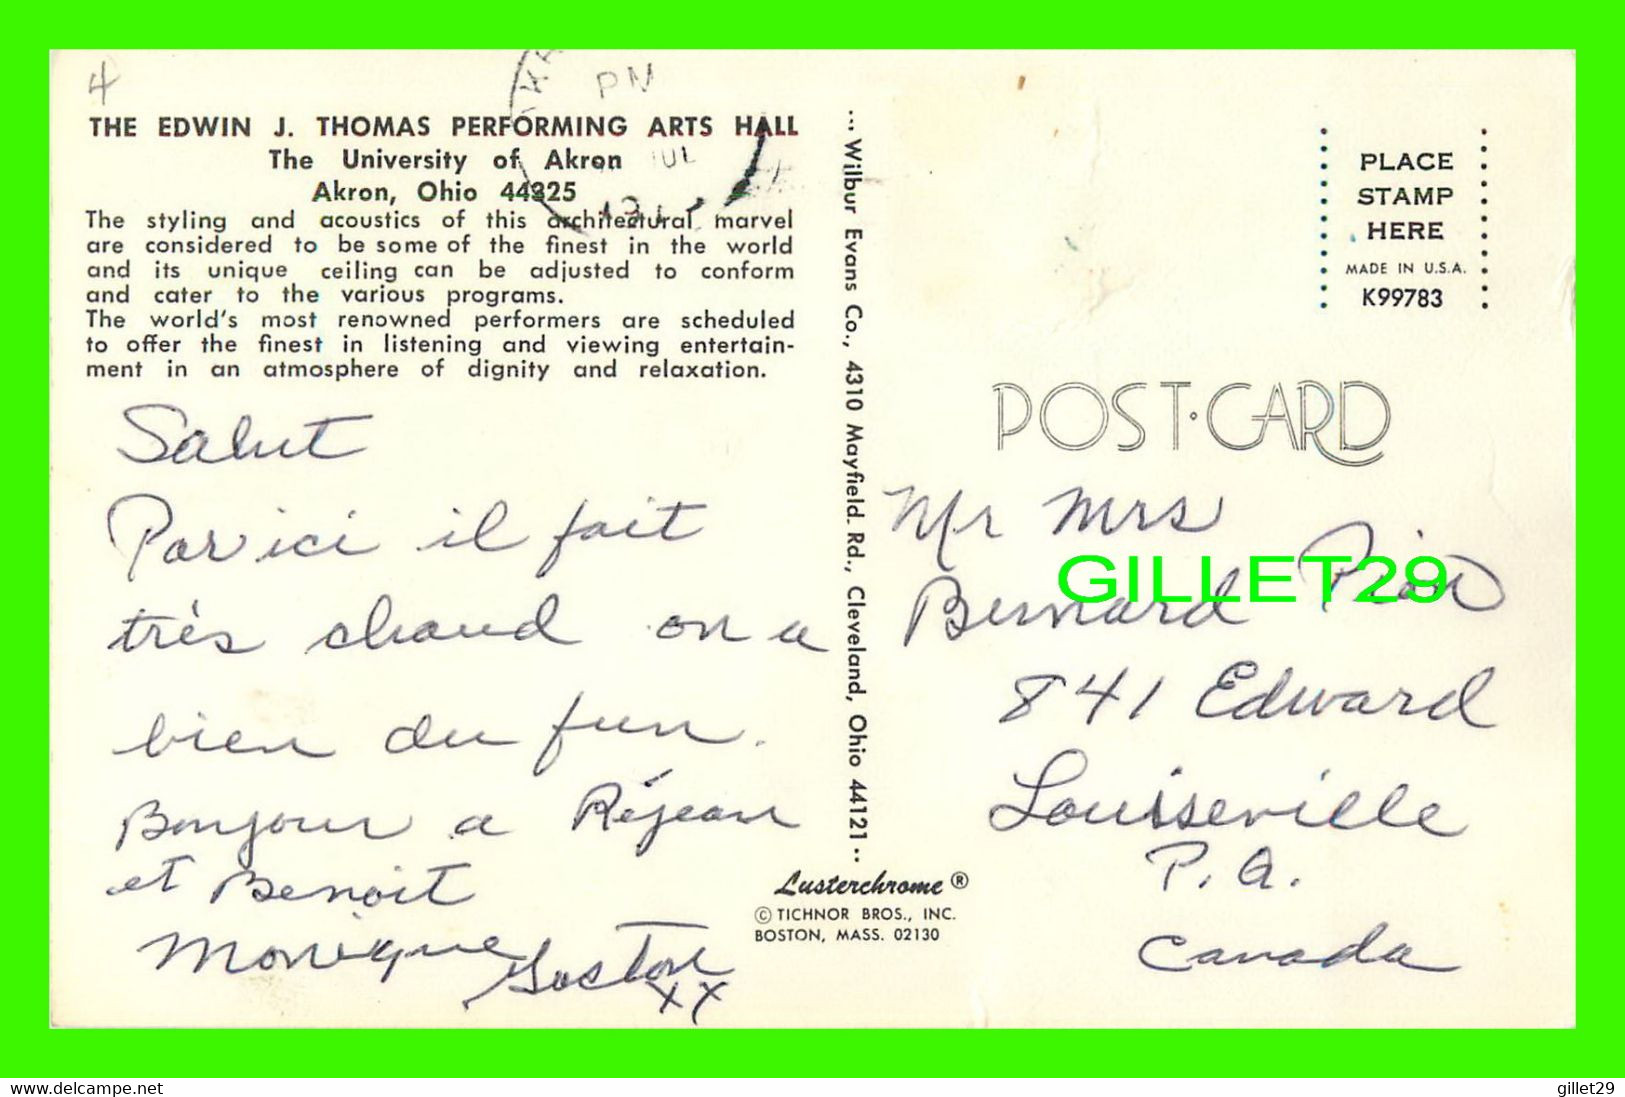 4
PM
JUL
THE EDWIN J. THOMAS PERFORMING ARTS HALL
The University of Akron
Akron, Ohio 44325
The styling and acoustics of this architectural marvel
are considered to be some of the finest in the world
and its unique ceiling can be adjusted to conform
and cater to the various programs.
The world's most renowned performers are scheduled
to offer the finest in listening and viewing entertain-
ment in an atmosphere of dignity and relaxation.
Salut
Par ici il fait
très chaud on a
bien du fun.
Bonjour a Réjean
et Benoit
Monique Gaston
xx
... Wilbur Evans Co., 4310 Mayfield. Rd., Cleveland, Ohio 44121 ..
Lusterchrome ®
© TICHNOR BROS., INC.
BOSTON, MASS. 02130
PLACE
STAMP
HERE
MADE IN U.S.A.
K99783
POST·CARD
Mr Mrs
Bernard
841 Edward
Louiseville
P.Q.
Canada
GILLET29
www.delcampe.net
gillet29